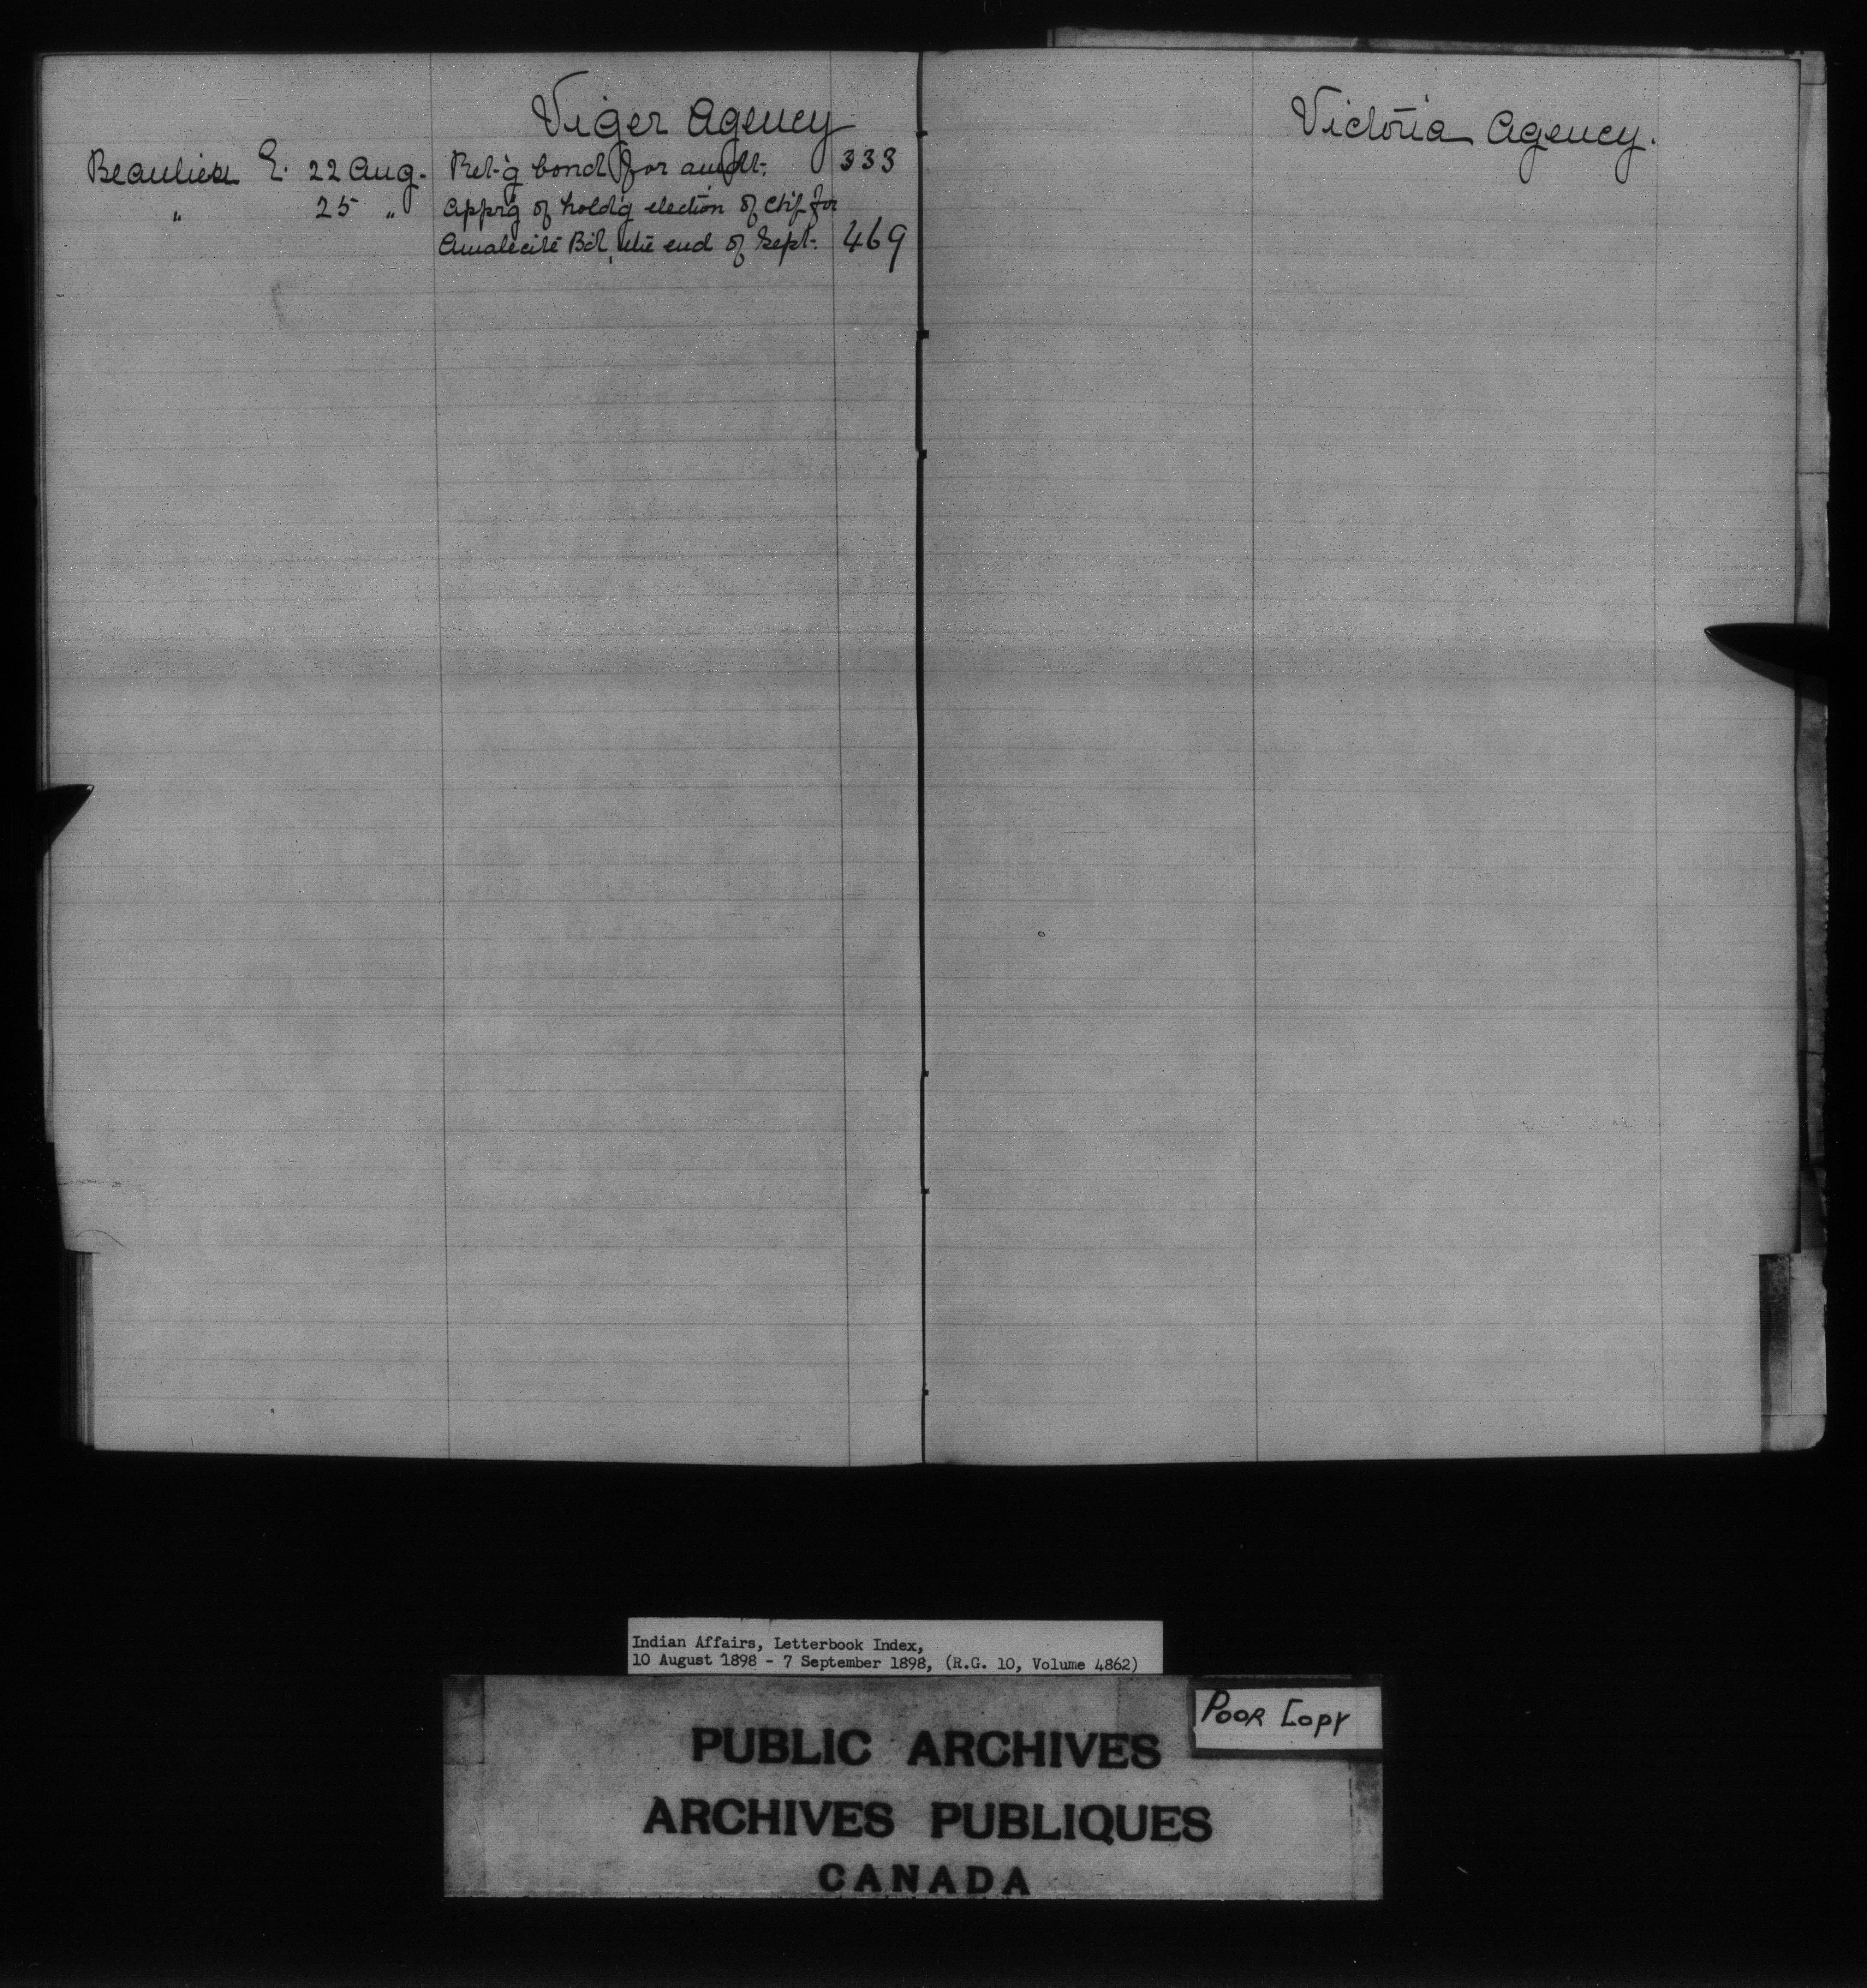 Viger Agency
Beaulieu E. 22 Aug. Ret-'g bond for amdt. 333
" 25 " Appr'g of hold'g election of Chf for
Amalecite Bd, the end of Sept. 469
Victoria Agency.
Indian Affairs, Letterbook Index,
10 August 1898 - 7 September 1898, (R.G. 10, Volume 4862)
POOR COPY
PUBLIC ARCHIVES
ARCHIVES PUBLIQUES
CANADA